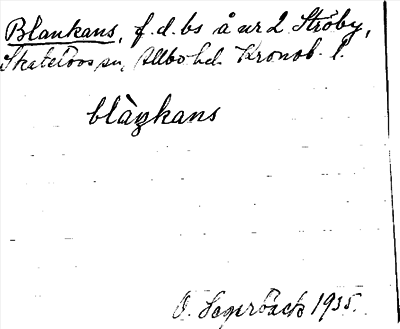 Blankans, f. d. bs å nr 2 Ströby,
Skatelövs sn, Allbo hd. Kronob. l.
blàŋkans
O. Segerbäck 1935.